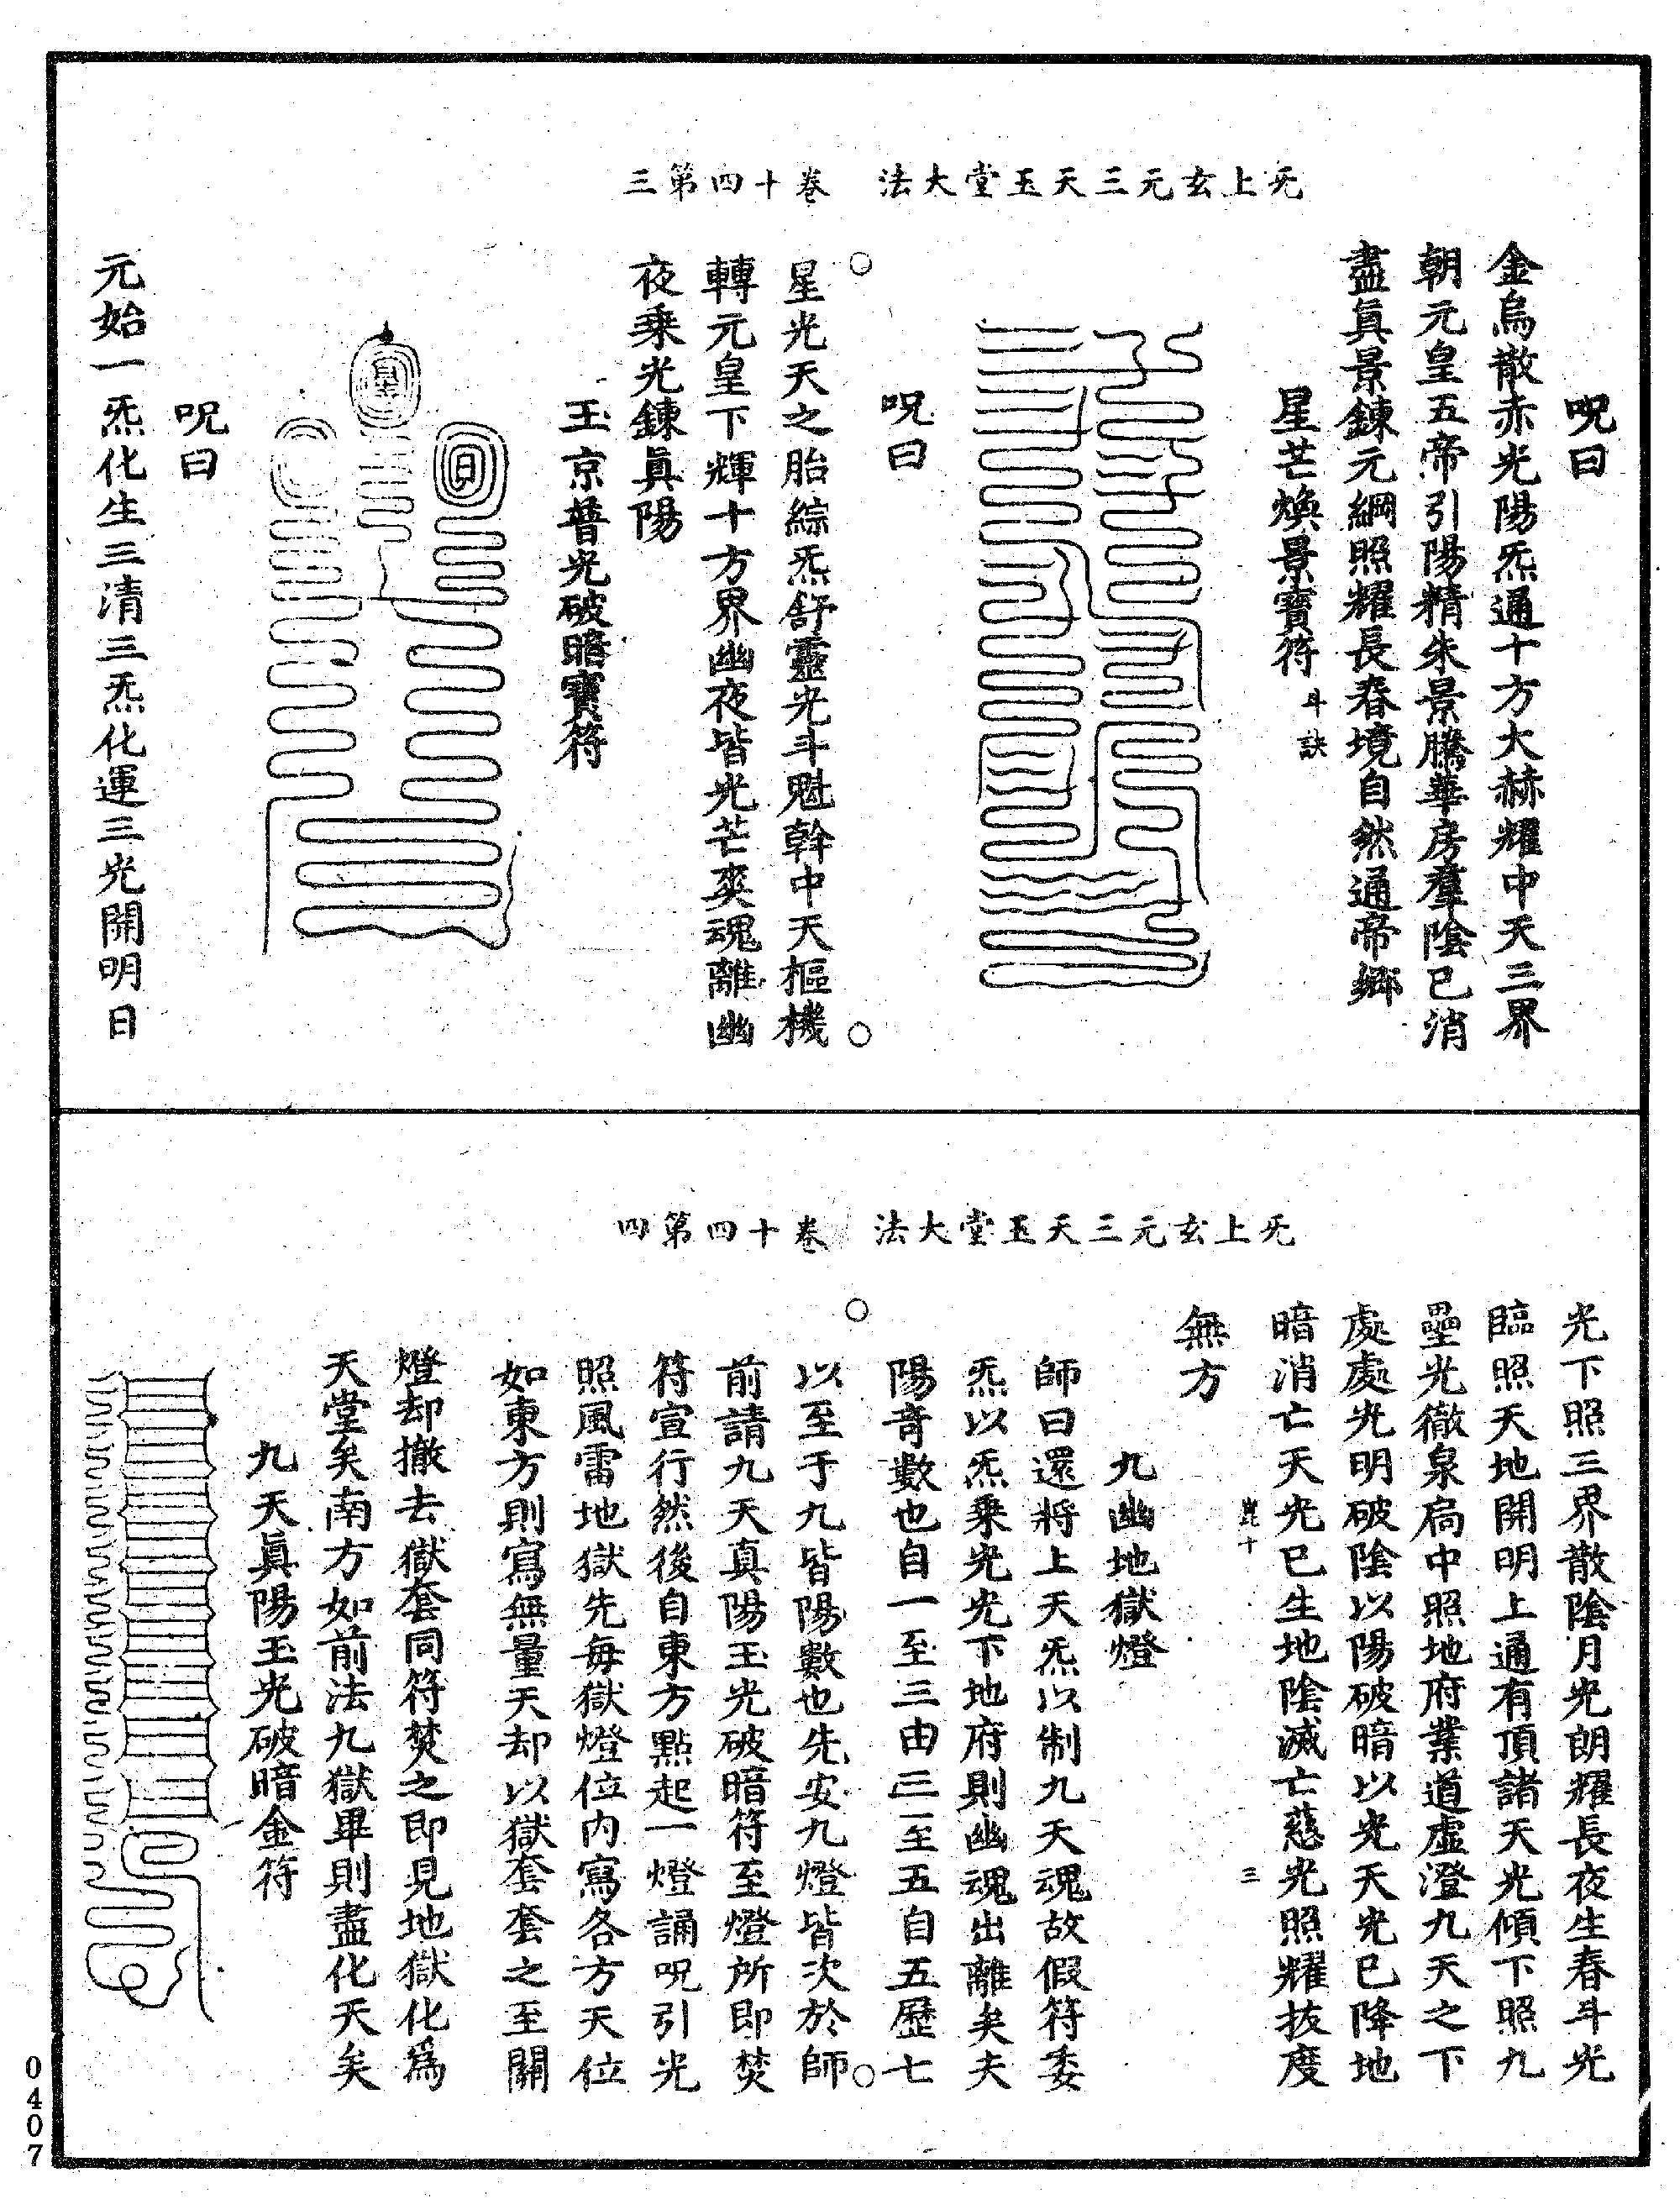 无上玄元三天玉堂大法　卷十四第三
呪曰
金烏散赤光陽炁通十方大赫耀中天三界
朝元皇五帝引陽精朱景騰華房羣陰已消
盡眞景鍊元綱照耀長春境自然通帝鄉
星芒煥景寶符斗訣
呪曰
星光天之胎綜炁舒靈光斗魁斡中天樞機
轉元皇下輝十方界幽夜皆光芒爽魂離幽
夜乘光鍊眞陽
玉京普光破暗寶符
日
呪曰
元始一炁化生三清三炁化運三光開明日
无上玄元三天玉堂大法　卷十四第四
光下照三界散陰月光朗耀長夜生春斗光
臨照天地開明上通有頂諸天光傾下照九
壘光徹泉扃中照地府業道虛澄九天之下
處處光明破陰以陽破暗以光天光已降地
暗消亡天光已生地陰滅亡慈光照耀拔度
十　三
無方
九幽地獄燈
師曰還將上天炁以制九天魂故假符委
炁以炁乘光光下地府則幽魂出離矣夫
陽奇數也自一至三由三至五自五歷七
以至于九皆陽數也先安九燈皆次於師
前請九天真陽玉光破暗符至燈所即焚
符宣行然後自東方點起一燈誦呪引光
照風雷地獄先每獄燈位內寫各方天位
如東方則寫無量天却以獄套套之至關
燈却撤去獄套同符焚之即見地獄化爲
天堂矣南方如前法九獄畢則盡化天矣
九天眞陽玉光破暗金符
0407